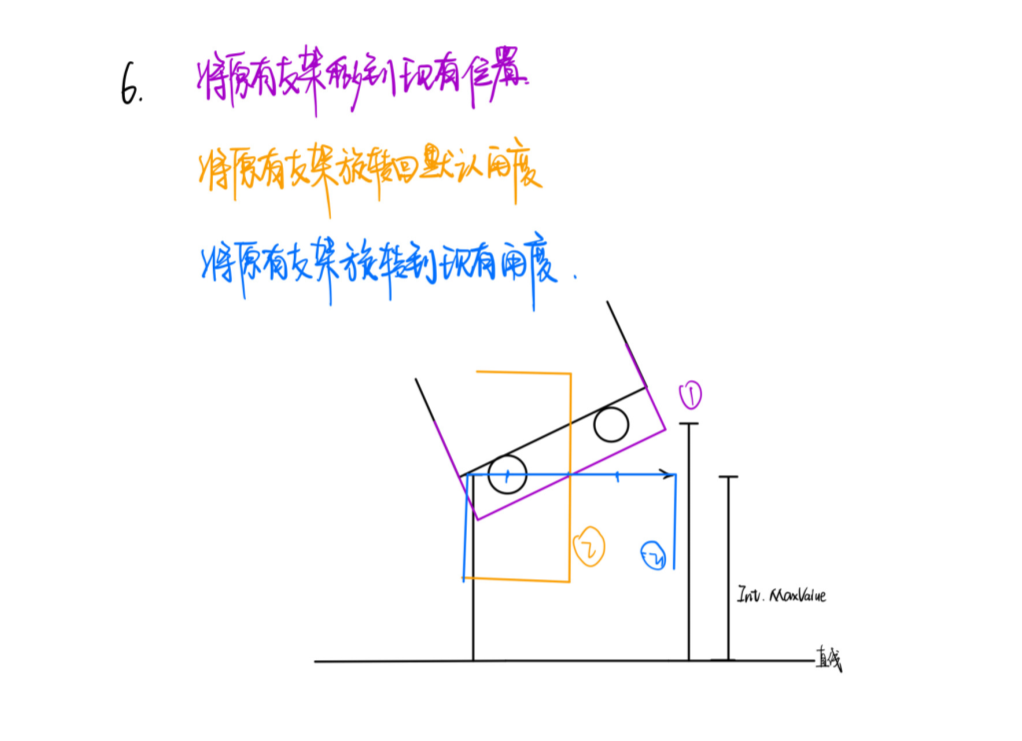 6. 将原有支架移到现有位置.
将原有支架旋转回默认角度
将原有支架旋转到现有角度.
①
②
Int.MaxValue
直线